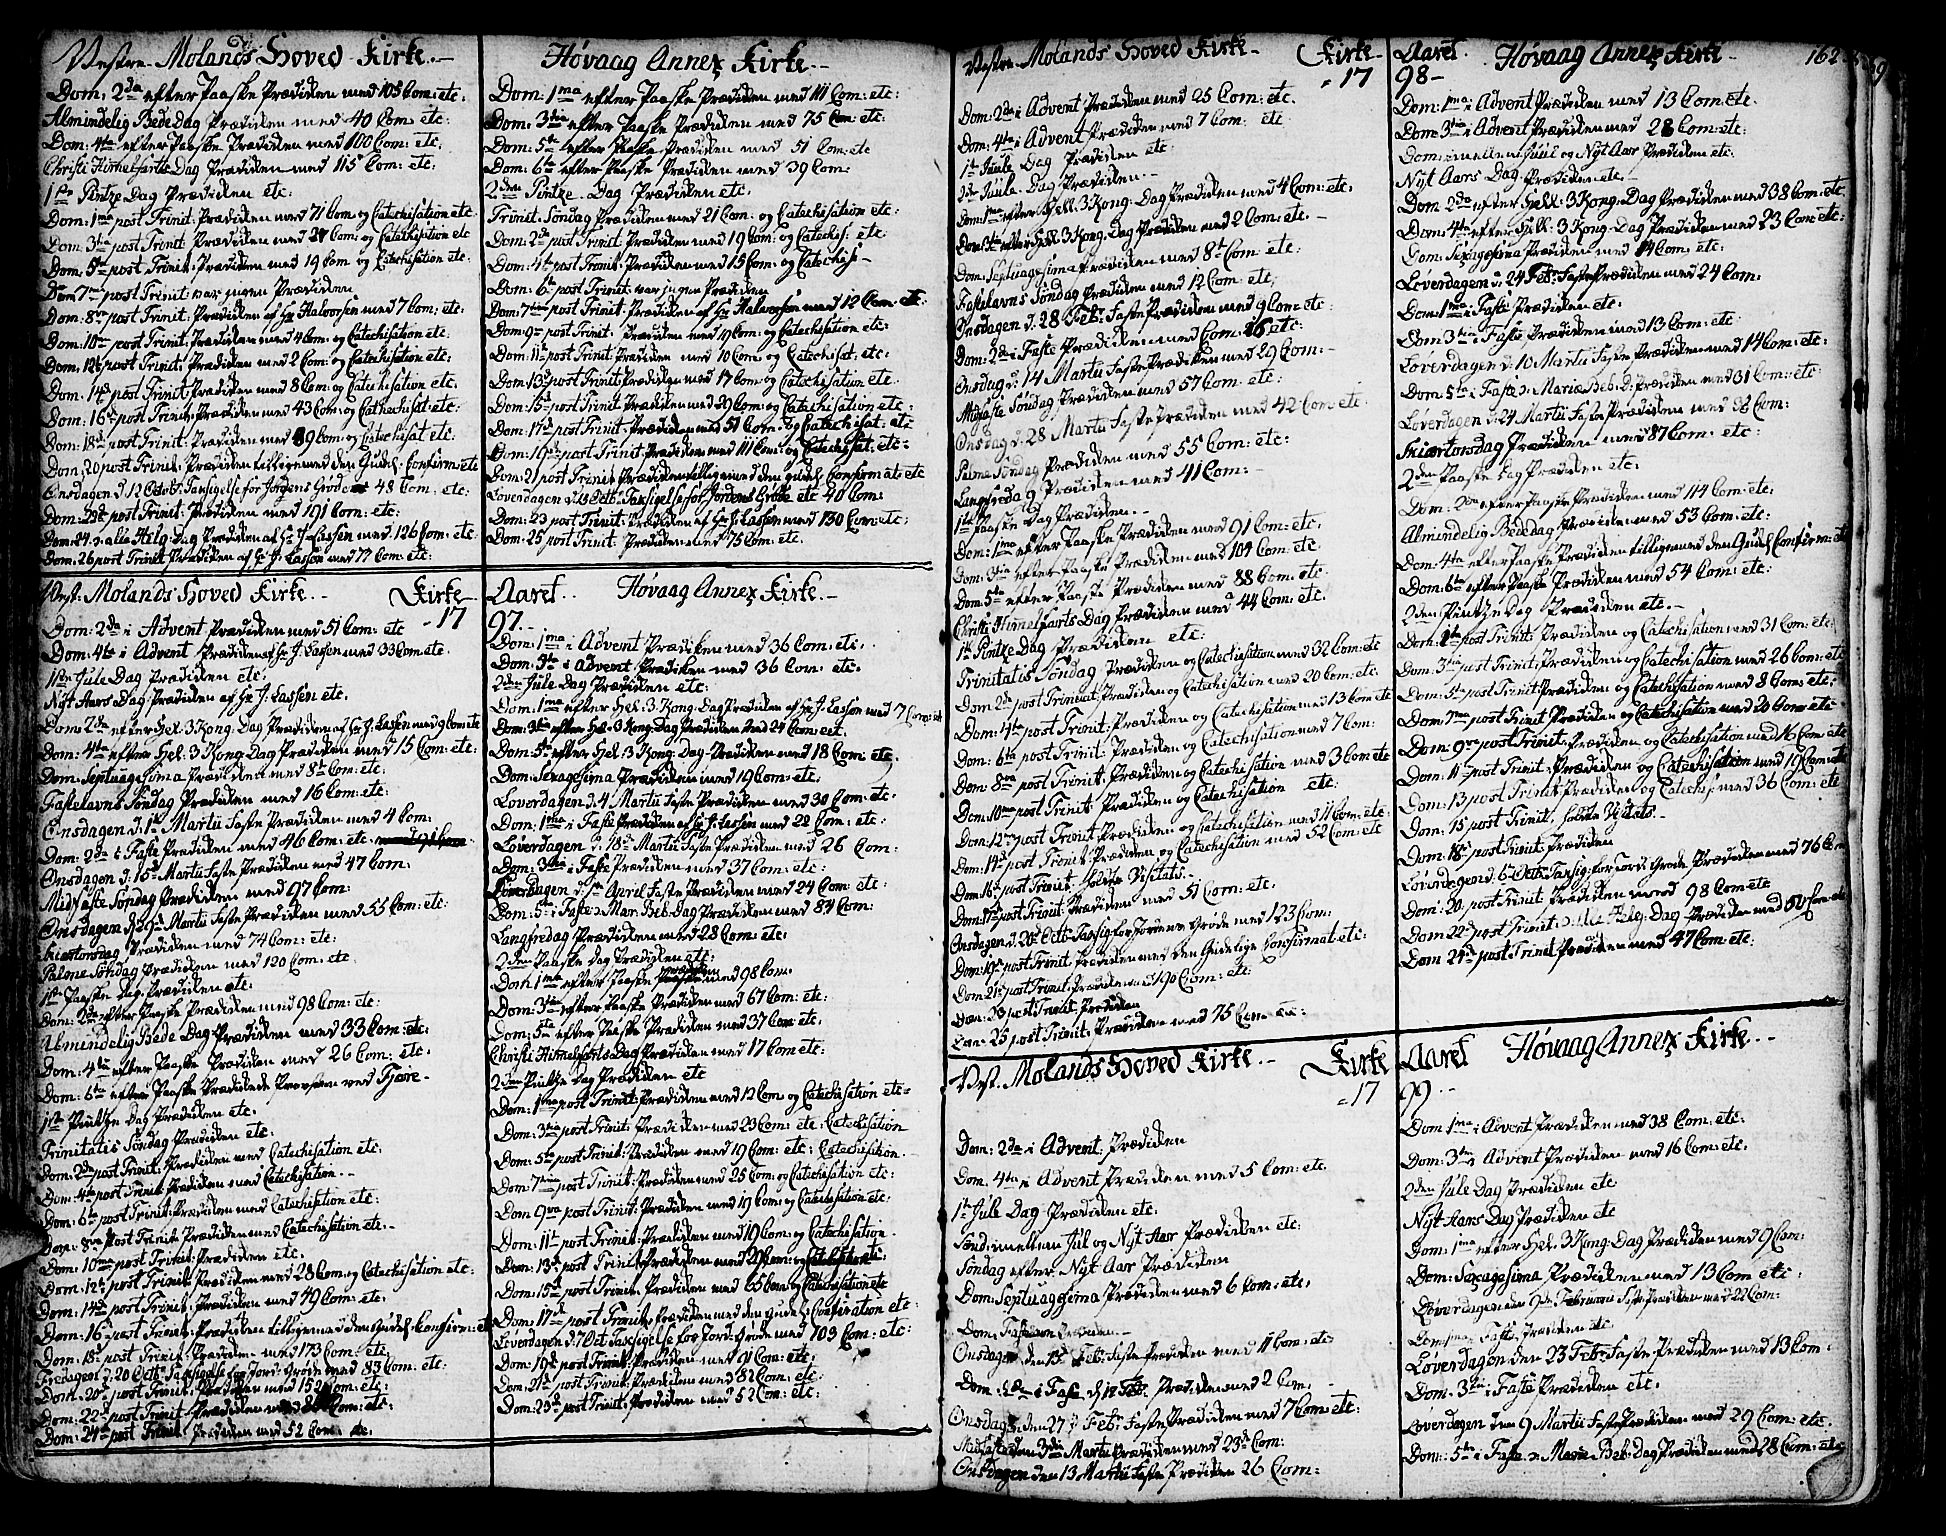 Vestre Molands Hoved Kirke.
Dom: 2da efter Paaske Prædiken med 105 Com: etc.
Almindelig Bededag Prædiken med 40 Com: etc:
Dom: 4ta efter Paaske Prædiken med 100 Com: etc:
Christi Himelfarts Dag Prædiken med 115 Com: etc.
1ste Pintze Dag Prædiken etc:
Dom: 1ma post Trinit: Prædiken med 71 Com og Catechisation etc
Dom: 3tia post Trinit: Prædiken med Com: og Catechisation etc
Dom: 5ta post Trinit: Prædiken med 19 Com og Catechisation etc.
Dom 7ma post Trinit var ingen Prædiken
Dom: 8va post Trinit: Prædiken af Hr Halvorsen med 7 Com: etc:
Dom: 10de post Trinit: Prædiken med 4 Com: og Catechisation etc:
Dom: 12te post Trinit: Prædiken med 2 Com: og Catechisation etc:
Dom: 14de post Trinit Prædiken med 8 Com: og Catechisation etc.
Dom: 16de post Trinit: Prædiken med 43 Com: og Cathechisat: etc:
Dom: 18de post Trinit: Prædiken med 9 Com: og Catechisat etc:
Dom: 20 post Trinit: Prædiken tilligemed den Gudel: Confirm: etc
Onsdagen d. 12 Octob: Taksigelse for Jordens Grøde 48 Com: etc:
Dom: 22de post Trinit: Prædiken med 191 Com: etc.
Dom: 24. alle Helg: Dag Prædiken af Hr J: Lassen med 126 Com: etc.
Dom: 26 post Trinit Prædiken af Hr J: Lassen med 77 Com: etc.
Høvaag Annex Kirke.
Dom: 1ma efter Paaske Prædiken med 111 Com: etc:
Dom: 3tia efter Paaske Prædiken med 75 Com: etc:
Dom: 5ta efter Paaske Prædiken med 51 Com: etc
Dom: 6ta efter Paaske Prædiken med 39 Com:
2den Pintze Dag Prædiken etc.
Trinit: Søndag Prædiken med 21 Com: og Catechisation etc:
Dom: 2da post Trinit: Prædiken med 19 Com: og Catechis: etc
Dom: 4ta post Trinit: Prædiken med 15 Com: og Catechis
Dom: 6ta post Trinit: var ingen Prædiken
Dom: 7tima post Trinit: Prædiken af Hr Halvorsen med 12 Com: etc
Dom: 9na post Trinit: Prædiken med 19 Com: og Catechisation etc:
Dom: 11te post Trinit: Prædiken med 10 Com: og Catechisat: etc:
Dom: 13de post Trinit: Prædiken med 17 Com og Catechisation etc.
Dom: 15de post Trinit: Prædiken med 29 Com: og Catechisation etc:
Dom: 17de post Trinit: Prædiken med 51 Com: og Catechisat: etc
Dom: 19de post Trinit: Prædiken med 111 Com: og Catechisat: etc:
Dom: 21 post Trinit: Prædiken tilligemed den gudel: Confirmat: etc
Løverdagen d. 13 Octb: Taksigelse for Jordens Grøde etc 40 Com:
Dom: 23 post Trinit: Prædiken af Hr J: Lassen med 130 Com: etc:
Dom: 25 post Trinit: Prædiken med 75 Com: etc
Vest. Molands Hoved Kirke. Kirke 17
Dom: 2da i Advent Prædiken med 51 Com: etc
Dom: 4ta i Advent Prædiken af Hr J: Lassen med 33 Com etc.
1ste Jule Dag Prædiken etc:
Nyt Aars Dag Prædiken af Hr J. Lassen etc.
Dom: 2da efter Hel. 3 Kong: Dag Prædiken af Hr J: Lassen med 9 Com: etc
Dom: 4ta efter Hel: 3 Kong: Dag Prædiken med 15 Com: etc:
Dom: Septuagesima Prædiken med 8te Com: etc:
Fastelavns Søndag Prædiken med 16 Com: etc:
Onsdagen d. 1te Martii Faste Prædiken med 4 Com:
Dom: 2da i Faste Prædiken med 46 Com: etc
Onsdagen d. 15de Martii Faste Prædiken med 47 Com:
Midfaste Søndag Prædiken med 97 Com:
Onsdagen d. 29de Martii Faste Prædiken med 55 Com: etc:
Skiærtorsdag Prædiken med 74 Com: etc:
Palme Søndag Prædiken med 120 Com: etc:
1ste Paaske Dag Prædiken etc:
Dom: 2da efter Paaske Prædiken med 98 Com: etc:
Almindelig Bede Dag Prædiken med 33 Com: etc:
Dom: 4ta efter Paaske Prædiken med 26 Com: etc:
Dom: 6ta efter Paaske Prædikede Provsten ved Fjære
1ste Pintze Dag Prædiken etc.
Trinitatis Søndag Prædiken etc:
Dom: 2da post Trinit: Prædiken med Catechisation etc:
Dom: 4ta post Trinit: Prædiken med Catechisation.
Dom: 6ta post Trinit: Prædiken med Catechisation etc:
Dom: 8va Post Trinit: Prædiken med Catechisation etc.
Dom: 10ma post Trinit: Prædiken etc.
Dom: 12te post Trinit: Prædiken med 28 Com: og Catechisation etc:
Dom: 14de post Trinit: Prædiken med 49 Com: etc.
Dom: 16de post Trinit: Prædiken tilligemed den Gudel: Confirm: etc
Dom: 18de post Trinit: Prædiken med 173 Com: etc
Fredagen d: 20 Octb: Taksigelse for Jord: Grøde med 83 Com: etc:
Dom: 20de post Trinit: Prædiken med 152 Com: etc:
Dom: 22de post Trinit: Prædiken med Com: etc:
Dom: 24de post Trinit: Prædiken med 52 Com: etc.
Aaret Høvaag Annex Kirke.
97.
Dom: 1ma i Advent Prædiken med 36 Com: etc.
Dom: 3tia i Advent Prædiken med 36 Com: etc.
2den Jule Dag Prædiken etc:
Dom: 1ma efter Hel: 3 Kong: Dag Prædiken af Hr J: Lassen med 7 Com: etc
Dom: 3tia efter Hel: 3 Kong: Dag Prædiken med 24 Com: etc.
Dom: 5ta efter Hel: 3 Kong: Dag Prædiken med 18 Com: etc.
Dom: Sexagesima Prædiken med 19 Com: etc.
Løverdagen d. 4 Martii Faste Prædiken med 30 Com: etc.
Dom: 1ma i Faste Prædiken af Hr J: Lassen med 22 Com: etc:
Løverdagen d: 18de Martii Faste Prædiken med 26 Com:
Dom: 3tia i Faste Prædiken med 37 Com: etc:
Løverdagen d. 1te Aprel Faste Prædiken med 24 Com: etc.
Dom: 5ta i Faste Mar: Beb: Dag Prædiken med 84 Com:
Langfredag Prædiken med 28 Com: etc:
2den Paaske Dag Prædiken etc:
Dom 1ma efter Paaske Prædiken med 98 Com:
Dom: 3tia efter Paaske Prædiken med 67 Com: etc:
Dom: 5ta efter Paaske Prædiken med 37 Com: etc:
Christi Himelfarts Dag Prædiken med 17 Com etc:
2den Pintze Dag Prædiken etc
Dom: 1ma post Trinit: Prædiken med 12 Com og Catechisation etc
Dom: 3tia post Trinit: Prædiken med 23 Com: etc: Catechisation
Dom: 5ta post Trinit: Prædiken med 19 Com: etc: Catechisation.
Dom: 7tima post Trinit: Prædiken med 25 Com: og Catechisation etc:
Dom: 9va post Trinit: Prædiken med 19 Com: og Catechisation etc:
Dom: 11te post Trinit: Prædiken med 19 Com: og Catechisation
Dom: 13de post Trinit: Prædiken med Com: og Catechisat: etc:
Dom: 15de post Trinit: Prædiken med 65 Com: og Catechisation etc
Dom: 17de post Trinit: Prædiken med den gudel: Confiration etc:
Løverdagen d. 7 Oct: Taksigelse for Jord: Grøde med 103 Com: etc:
Dom: 19de post Trinit: Prædiken med 91 Com: etc:
Dom: 21de post Trinit: Prædiken med 82 Com: etc:
Dom: 23de post Trinit: Prædiken med 52 Com: etc:
Vestre Molands Hoved Kirke Kirke
17
Dom: 2da i Advent Prædiken med 25 Com: etc.
Dom: 4ta i Advent Prædiken med 7 Com: etc:
1te Juule Dag Prædiken etc:
2den Juule Dag Prædiken
Dom: 1ma efter Hell: 3 Kong: Dag Prædiken med 4 Com: etc:
Dom: efter Hell 3 Kong: Dag Prædiken med 2 Com: etc.
Dom: Septuagesima Prædiken med 8te Com: etc:
Fastelavns Søndag Prædiken med 12 Com: etc,
Onsdagen d. 28 Febr: Faste Prædiken med 9 Com: etc:
Dom: 2da i Faste Prædiken med Com: 26 etc:
Onsdag d: 14 Martii Faste Prædiken med 29 Com:
Midfaste Søndag Prædiken med 57 Com: etc:
Onsdag d. 28 Martii Faste Prædiken med 42 Com: etc.
Palme Søndag Prædiken med 55 Com: etc:
Langfredag Prædiken med 41 Com:
1te Paaske Dag Prædiken.
Dom: 1ma efter Paaske Prædiken med 91 Com: etc.
Dom: 3tia efter Paaske Prædiken med 104 Com: etc:
Dom: 5ta efter Paaske Prædiken med 88 Com: etc:
Christi Himelfarts Dag Prædiken med 44 Com: etc:
1te Pintze Dag Prædiken etc:
Trinitatis Søndag Prædiken og Catechisation med 32 Com: etc
Dom: 2da post Trinitat: Prædiken og Catechisation med 20 Com: etc:
Dom: 4ta post Trinit: Prædiken og Catechisation med 13 Com etc
Dom: 6ta post Trinit: Prædiken og Catechisation med 7 Com:
Dom: 8va post Trinit: Prædiken og Catechisation med 3 Com etc
Dom: 10ma post Trinit: Prædiken og Catechisation etc:
Dom: 12ma post Trinit: Prædiken og Catechisation med 11 Com: etc:
Dom: 14de post Trinit: Prædiken og Catechisation med 52 Com: etc
Dom: 16de post Trinit: holdte Visitats.
Dom: 17de post Trinit: Prædiken med 51 Com: etc.
Onsdagen d. Octb: Taksig: for Jordens Grøde med 123 Com:
Dom: 19de post Trinit: Prædiken med den Gudelige Confirmat: etc:
Dom: 21de post Trinit: Prædiken med 190 Com: etc:
Dom: 23 post Trinit: Prædiken
Dom: 25 post Trinit: Prædiken med 75 Com: etc:
Aaret Høvaag Annex Kirke 162
98
Dom: 1ma i Advent Prædiken med 13 Com: etc.
Dom: 3tia i Advent Prædiken med 28 Com: etc:
Dom: imellem Juul og Nyt Aar Prædiken etc:
Nyt Aars Dag Prædiken etc.
Dom: 2da efter Hell: 3 Kong: Dag Prædiken med 38 Com: etc.
Dom: 4ta efter Hell: 3 Kong: Dag Prædiken med 23 Com: etc:
Dom: Sexagesima Prædiken med Com: etc:
Løverdagen d: 24 Feb: Faste Prædiken med 24 Com:
Dom: 1ma i Faste Prædiken etc:
Dom: 3tia i Faste Prædiken med 13 Com: etc:
Løverdagen d. 10 Martii Faste Prædiken med 14 Com: etc:
Dom: 5ta i Faste Mariæ Beb: D: Prædiken med 31 Com: etc:
Løverdagen d: 24 Martii Faste Prædiken med 32 Com:
Skiærtorsdag Prædiken med 87 Com: etc:
2den Paaske Dag Prædiken etc:
Dom: 2da efter Paaske Prædiken med 114 Com: etc:
Almindelig Bededag Prædiken med 53 Com: etc:
Dom: 4ta efter Paaske Prædiken tilligemed den Gudel: Confirm: etc
Dom: 6ta efter Paaske Prædiken med 54 Com: etc:
2den Pintze Dag Prædiken etc.
Dom: 1ma post Trinit: Prædiken og Catechisation med 31 Com: etc
Dom: 3tia post Trinit: Prædiken og Catechisation med 26 Com: etc
Dom: 5ta post Trinit: Prædiken og Catechisation med 8 Com: etc:
Dom 7ma post Trinit Prædiken og Catechisation med 20 Com: etc
Dom: 9na post Trinit: Prædiken og Catechisation med 16 Com: etc
Dom: 11te post Trinit: Prædiken og Catechisation med Com: etc
Dom: 13 post Trinit: Prædiken og Catechis: med 36 Com: etc
Dom: 15 post Trinit: holdte Visitats.
Dom: 18de post Trinit: Prædiken
Løverdagen d. 6 Octb: Taksig: for Jord: Grøde Prædiken med 76 Com
Dom: 20 post Trinit: Prædiken med 98 Com: etc
Dom: 22de post Trinit: alle Helg: Dag Prædiken med 50 Com: etc
Dom 24de post Trinit: Prædiken med 47 Com: etc:
Vest. Molands Hoved Kirke. Kirke
17
Dom: 2da i Advent Prædiken
Dom: 4ta i Advent Prædiken med 5 Com: etc.
1te Jule Dag Prædiken etc:
Sønd: imellem Jul og Nyt Aar Prædiken
Søndag efter Nyt Aar Prædiken
Dom: Septuagesima Prædiken med 6 Com: etc.
Dom: Fastelavn Prædiken
Onsdagen den 13 Feb: Faste Prædiken med 11 Com: etc:
Dom: 2da i Faste d. 17 Feb: Prædiken med 2 Com:
Onsdagen den 27 Febr: Faste Prædiken med 7 Com: etc:
Midfaste den 3die Martii Prædiken med 23de Com:
Onsdagen den 13 Martii Faste Prædiken 26 Com:
Aaret Høvaag Annex Kirke.
99.
Dom 1ma i Advent Prædiken med 38 Com: etc.
Dom: 3tia i Advent Prædiken med 16 Com: etc.
2den Jule Dag Prædiken etc
Nyt Aars Dag Prædiken etc
Dom: 1ma efter Hel: 3 Kong: Dag Prædiken med 9 Com:
Dom: Sexagesima Prædiken med 13 Com etc:
Løverdagen den 9de Februarii Faste Prædiken med 22 Com:
Dom: 1ma i Faste, Prædiken etc
Løverdagen den 23 Feb: Faste Prædiken med 13 Com:
Dom: 3tia i Faste Prædiken etc.
Løverdagen den 9 Martii Faste Prædiken med 29 Com: etc.
Dom: 5ta i Faste Mariæ Beb: Dag Prædiken med 28 Com: etc